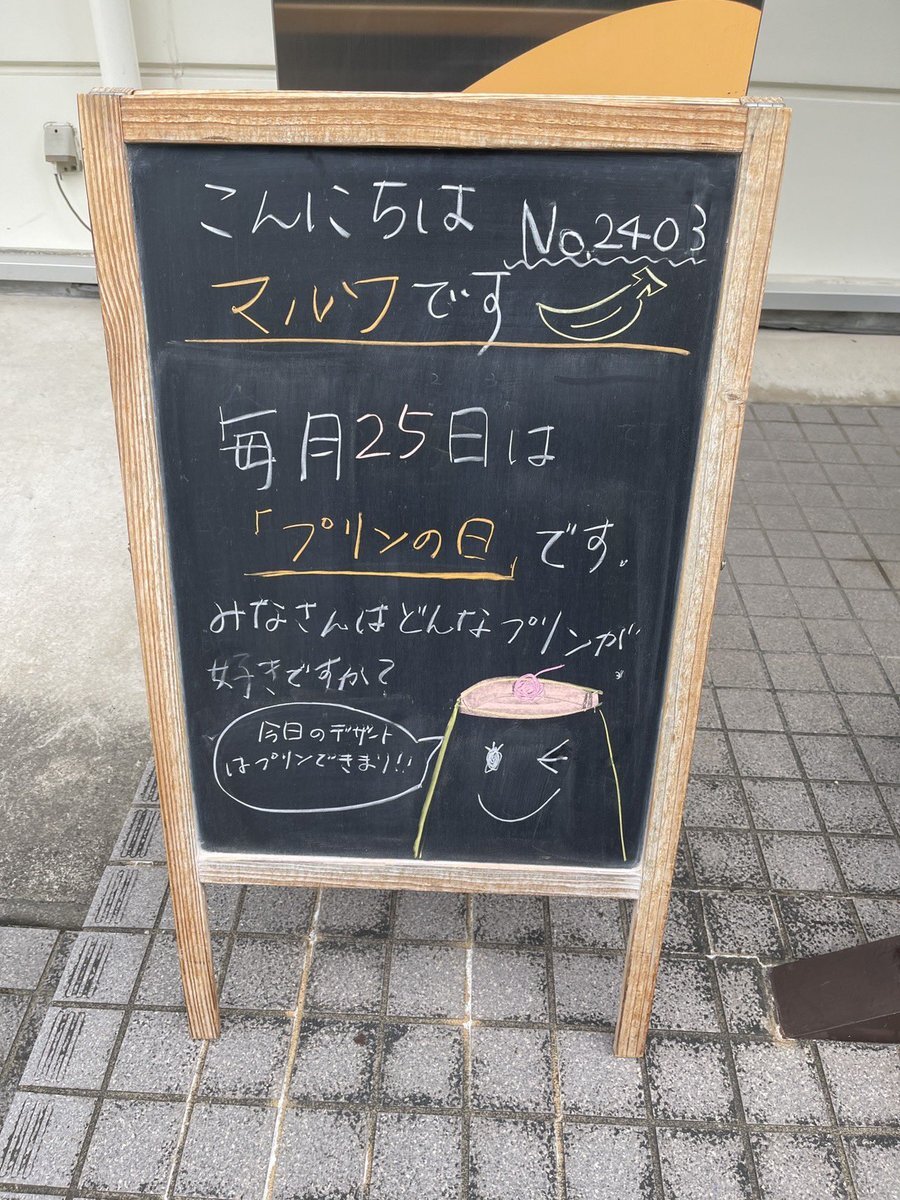 こんにちは
No.2403
マルワです
毎月25日は
「プリンの日」です。
みなさんはどんなプリンが
好きですか?
今日のデザート
はプリンできまり!!